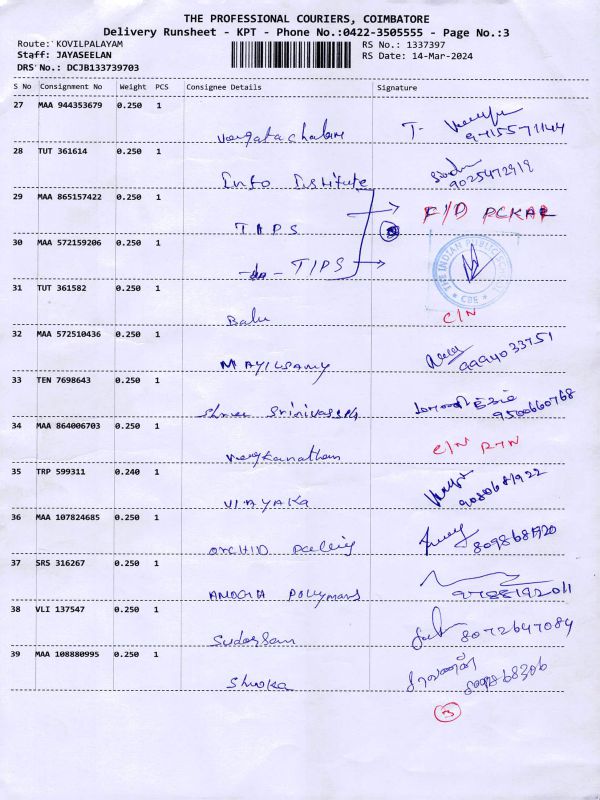 THE PROFESSIONAL COURIERS, COIMBATORE
Delivery Runsheet - KPT - Phone No.:0422-3505555 - Page No.:3
Route: KOVILPALAYAM
RS No.: 1337397
Staff: JAYASEELAN
RS Date: 14-Mar-2024
DRS No.: DCJB133739703
S No Consignment No Weight PCS Consignee Details Signature
27 MAA 944353679 0.250 1
T- 9715571144
28 TUT 361614 0.250 1
Info Institute 9025472919
29 MAA 865157422 0.250 1
TAPS
30 MAA 572159206 0.250 1
TIPS THE INDIAN PUBLIC SCHOOL CBE
31 TUT 361582 0.250 1
Balu C/N
32 MAA 572510436 0.250 1
MAYILSAMY 9994033751
33 TEN 7698643 0.250 1
Shree Srinivasa 9500660768
34 MAA 864006703 0.250 1
C/N
35 TRP 599311 0.240 1
VINAYAKA 9080681922
36 MAA 107824685 0.250 1
ORCHID
37 SRS 316267 0.250 1
Polymars 9788192011
38 VLI 137547 0.250 1
Sudarsan 8072647084
39 MAA 108880995 0.250 1
809868306
3